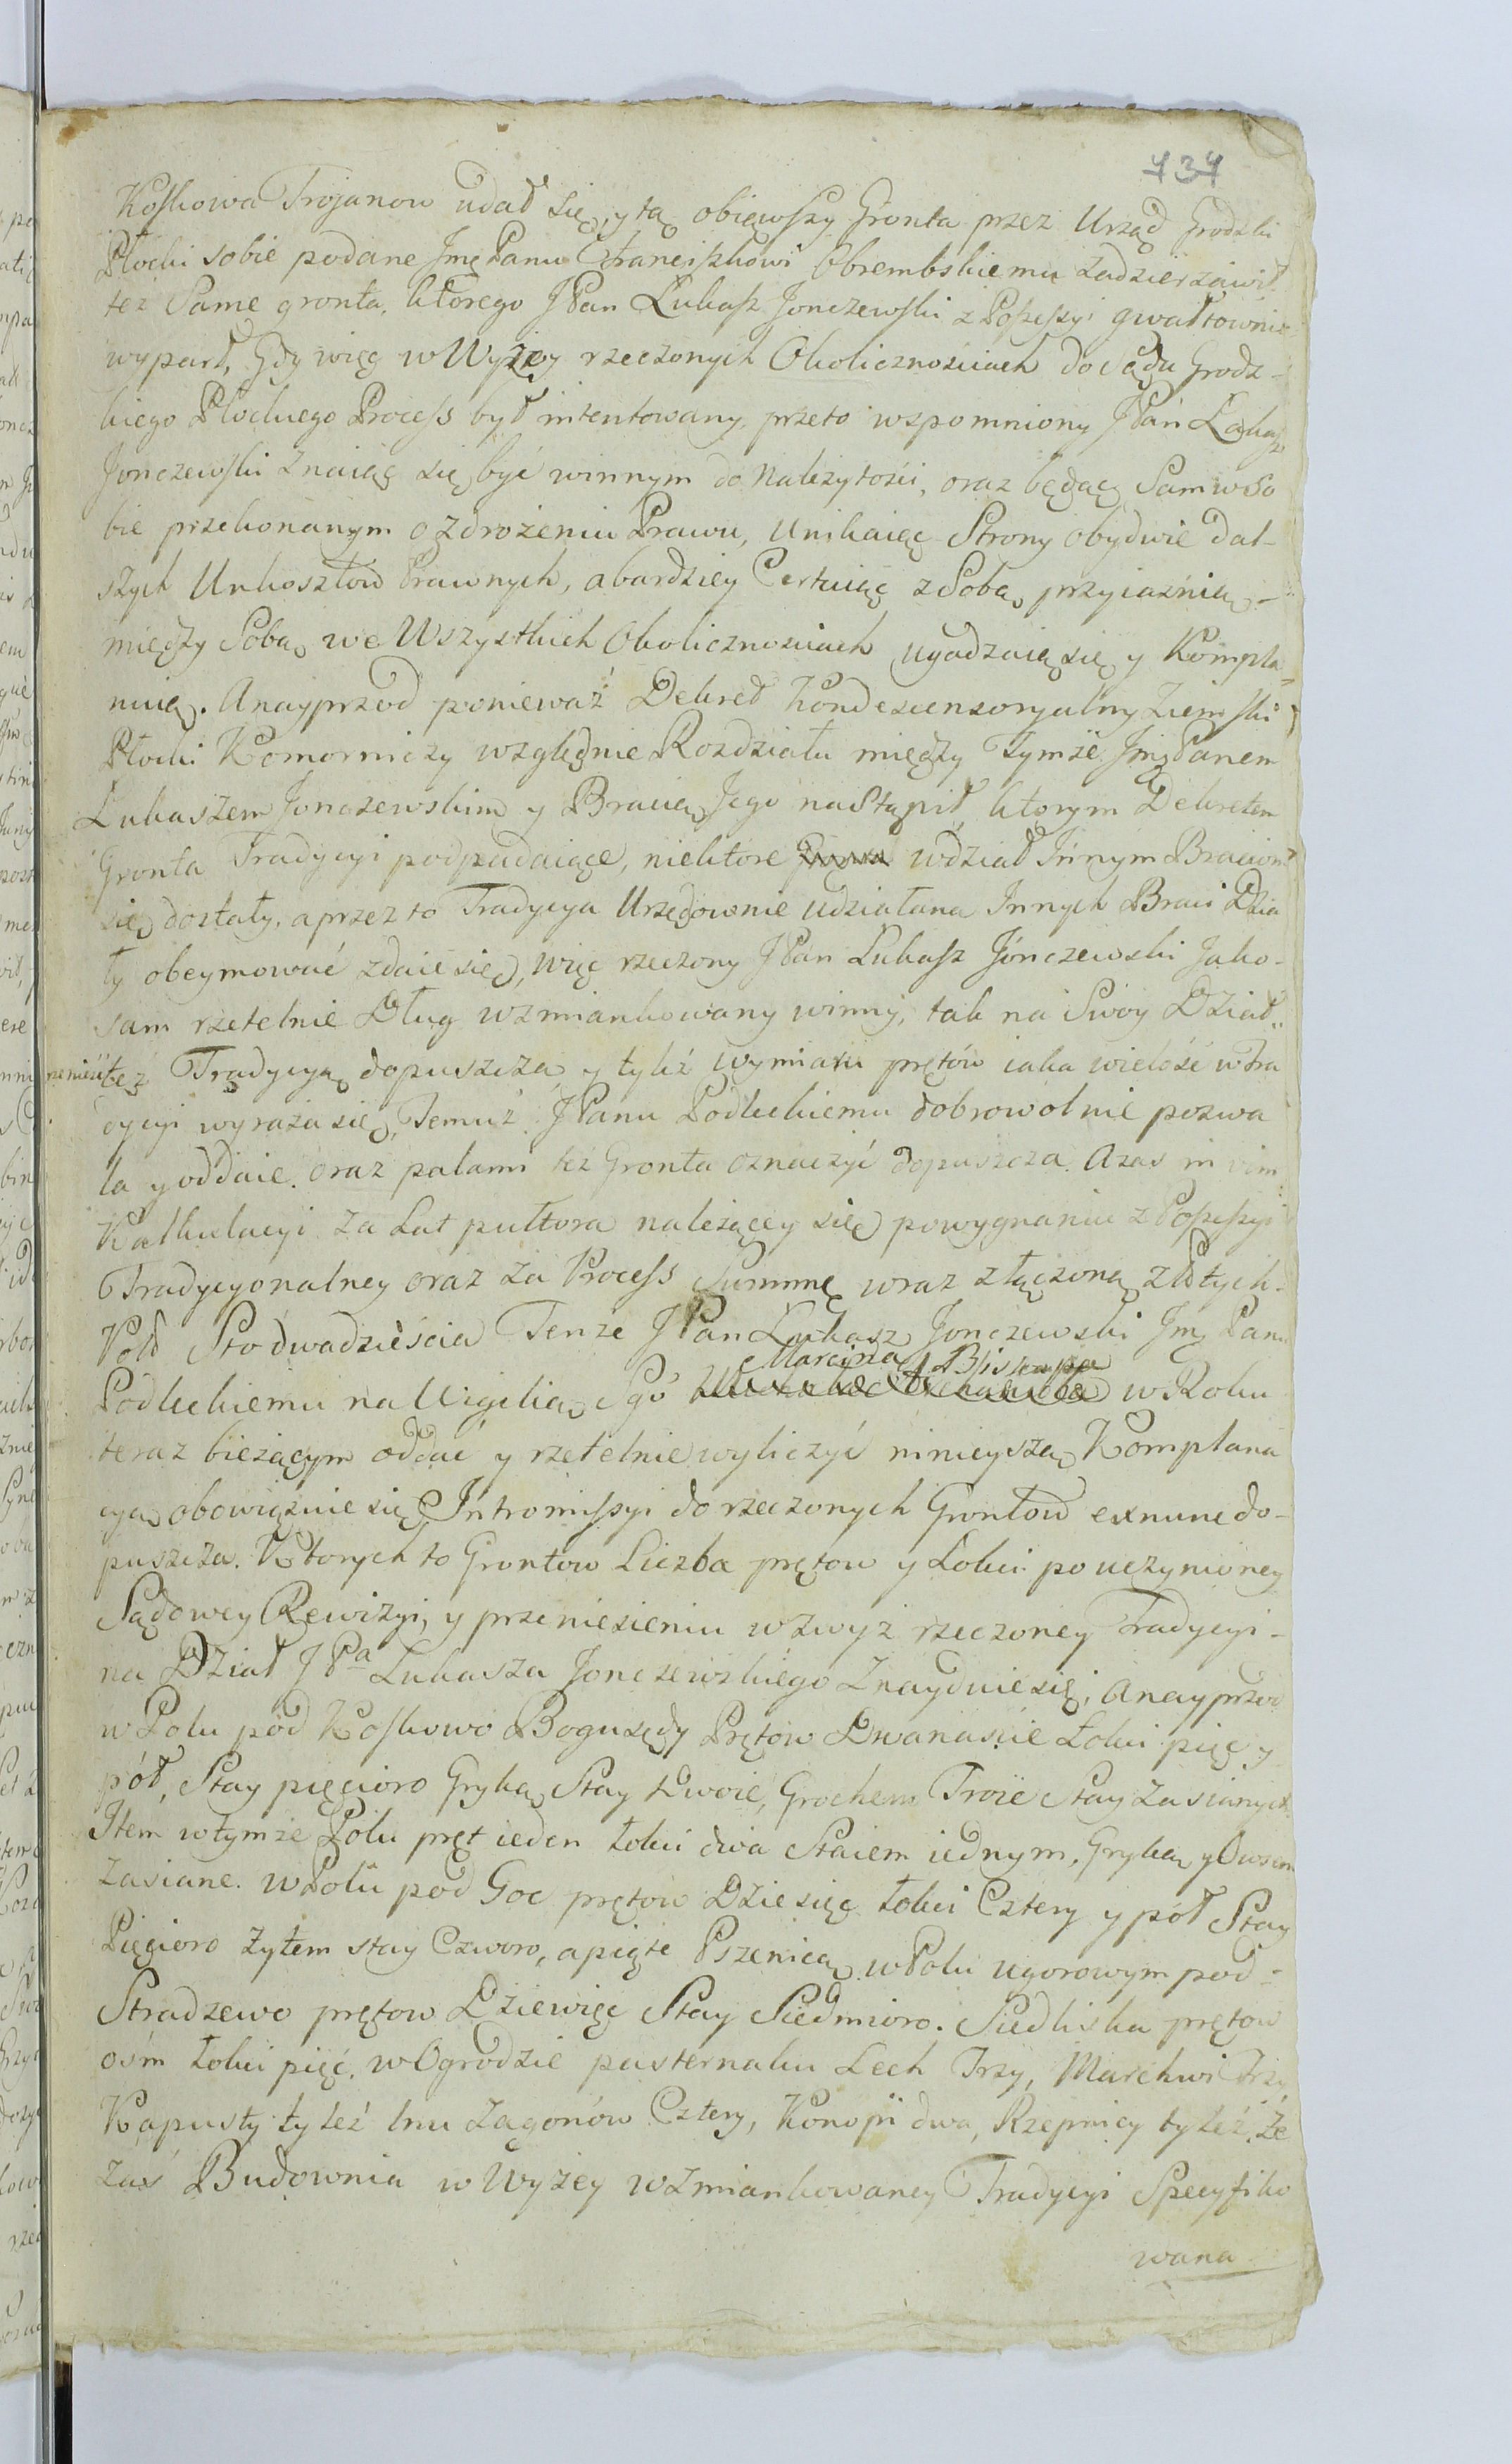 737
Koskowa Trojanow udał się, y tą obiąwszy Gronta przez Urząd Grodzki
Płocki sobie podane Jmę Panu Franciszkowi Obrembskiemu zadzierżawił
też Same gronta, którego JPan Łukasz Jonczewski z Possessyi gwałtownie
wyparł, Gdy więc w Wyżey rzeczonych Okolicznościach do Sądu Grodz-
kiego Płockiego Process był intentowany, przeto wspomniony JPan Łukasz
Jonczewski znaiąc się być winnym do Należytości, oraz będąc Sam w So
bie przekonanym o zdrożeniu Prawu, Unikaiąc Strony obydwie dal-
szych Unkosztow Prawnych, a bardziey Certuiąc z Sobą przyiaźnią-
między Sobą we Wszystkich Okolicznościach ugadzaią się y Kompla-
nuią. A nayprzod ponieważ Dekret Kondescensoryalny Ziemski
Płocki Komorniczy względnie Rozdziału między Tymże Jmę Panem
Łukaszem Jonczewskim y Bracią Jego nastąpił, którym Dekretem
Gronta Tradycyi podpadaiące, niektore w dział Innym Braciom
się dostały, a przez to Tradycya Urzędownie udziałana Innych Braci Dzia
ły obeymować zdaie się, więc rzeczony JPan Łukasz Jonczewski Jako-
sam rzetelnie Dług wzmiankowany winny, tak na Swoy Dział
też Tradycyą dopuszcza y tyleż wymiaru prętów iaka wielość w Tra
dycyi wyraża się, Temuż JPanu Podleckiemu dobrowolnie pozwa
la y oddaie, oraz palami też Gronta oznaczyć dopuszcza. A zas in vim
Kalkulacyi za Lat pułtora należącey się po wygnaniu z Possessyi
Tradycyonalney oraz za Process Summę wraz złączoną złotych
Pols Sto dwadzieścia Tenże JPan Łukasz Jonczewski Jmę Panu
Marcina Biskupa
Podleckiemu na Wigilią Sgo w Roku
teraz bieżącym oddać y rzetelnie wyliczyć ninieyszą Komplana
cyą obowiązuie się, Intromissyi do rzeczonych Grontow exnunc do-
puszcza. Których to Grontow Liczba prętow y Łokci po uczynioney
Sądowey Rewizyi, y przeniesieniu wzwyż rzeczoney Tradycyi-
na Dział JPa Łukasza Jonczewskiego znayduie się, A nayprzod
w Polu pod Koskowo Bogusędy Prętow Dwanaście Łokci pięć y
pół, Stay pięcioro Gryką Stay Dwoie, Grochem Troie Stay zasianych
Item w tymże Polu pręt ieden łokci dwa Staiem iednym, Gryką y Owsem
zasiane. w Polu pod Goc prętow Dziesięć łokci Cztery y pół Stay
Pięcioro żytem stay Czworo, a piąte Pszenicą. w Polu ugorowym pod-
Stradzewo prętow Dziewięć Stay Siedmioro. Siedliska prętow
ośm łokci pięć. w Ogrodzie pasternaku Lech Trzy, Marchwi Trzy,
Kapusty tyleż lnu zagonów Cztery, Konopi dwa, Rzepnicy tyleż. Że
zaś Budownia w Wyżey wzmiankowaney Tradycyi Specyfiko
wana